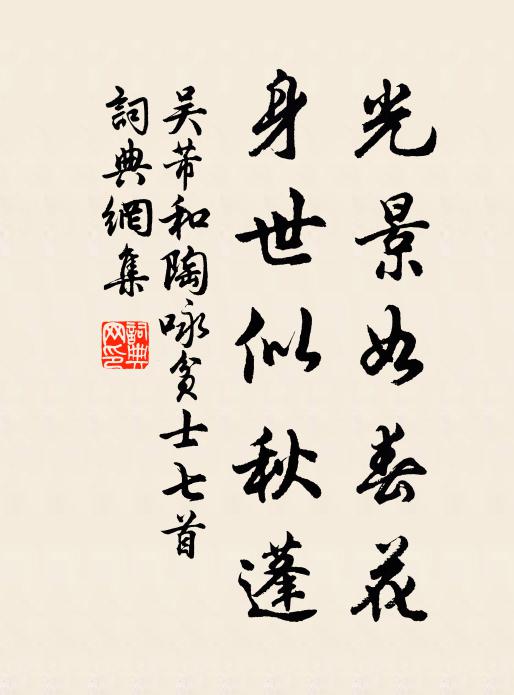 光景如春花
身世似秋蓬
吴芾和陶咏贫士七首
詞典網集
詞典網印